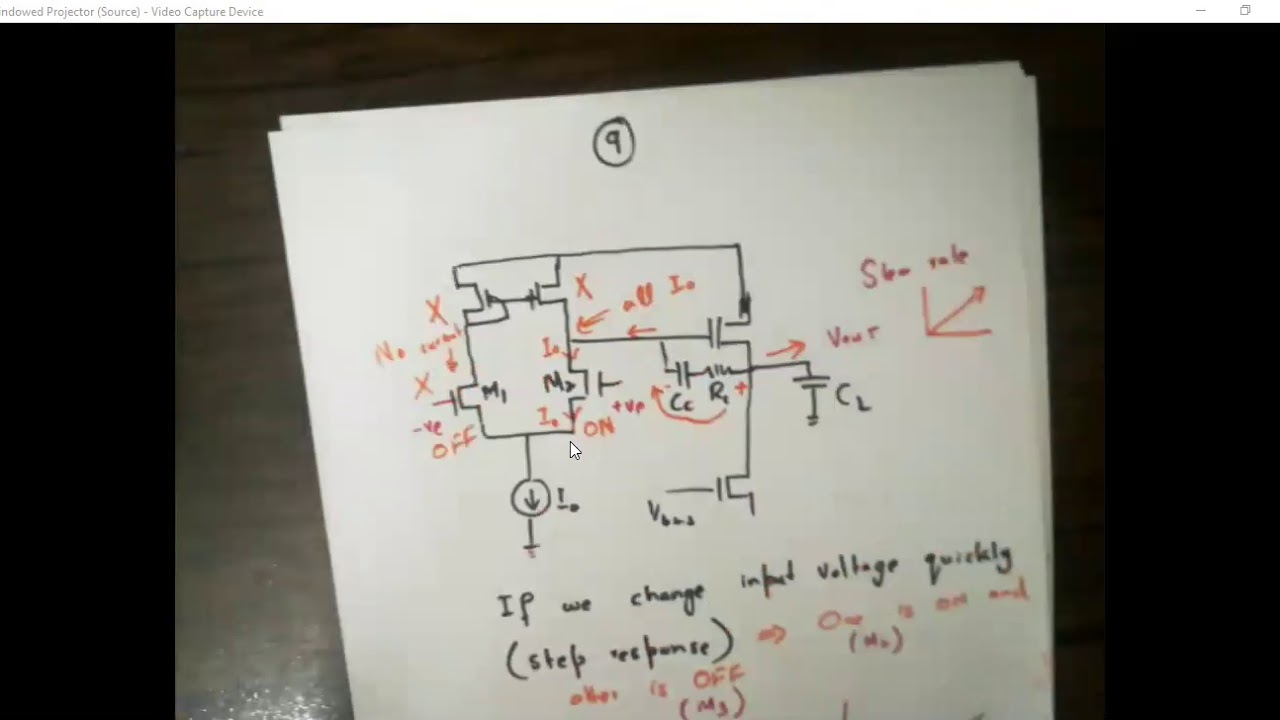 indowed Projector (Source) - Video Capture Device
9
Slew rate
X
X
all I₀
No current
I₀
Vout
X
M₁
M₂
-ve
+ve
-
+
Cc
R₁
C₂
OFF
I₀
ON
I₀
Vbias
If we change input voltage quickly
(step response) ⇒ One is ON and
(M₂)
other is OFF
(M₁)